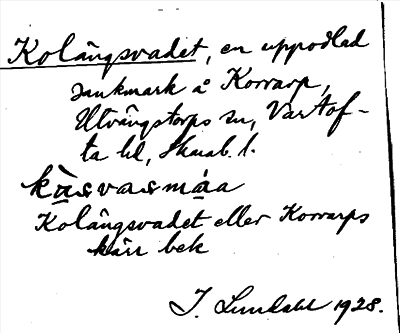 Kolångsvadet, en uppodlad
sankmark å Korrarp,
Utvängstorps sn, Vartof-
ta hd, Skarab. l.
kàsvasmáa
Kolångsvadet eller Korrarps
kärr bek
J. Lundahl 1928.